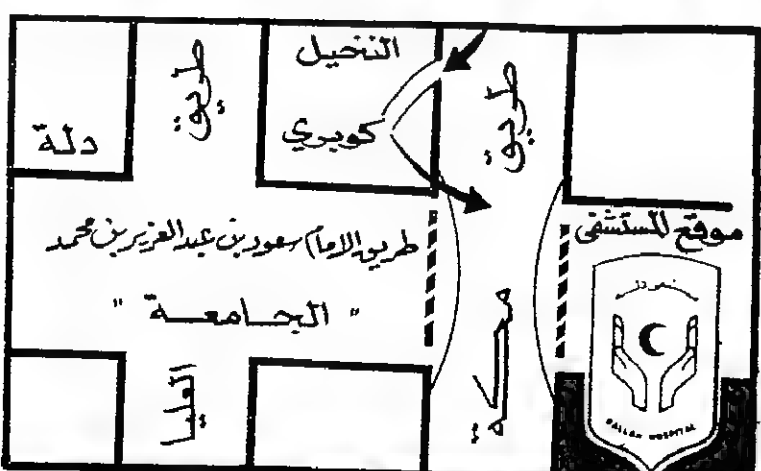 النخيل
كوبري
طريق
طريق
دلة
موقع المستشفى
طريق الإمام سعود بن عبد العزيز بن محمد
" الجامعة "
مكة
العليا
DALLAH HOSPITAL